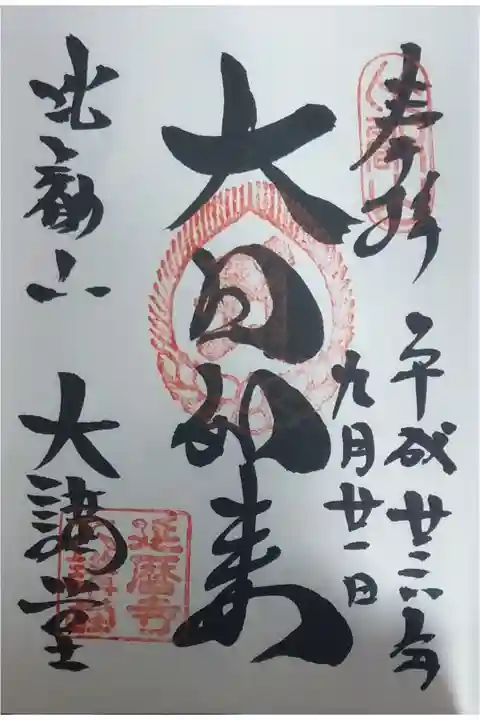 奉拝
平成廿六年
九月廿一日
大日如来
比叡山 大講堂
延暦寺